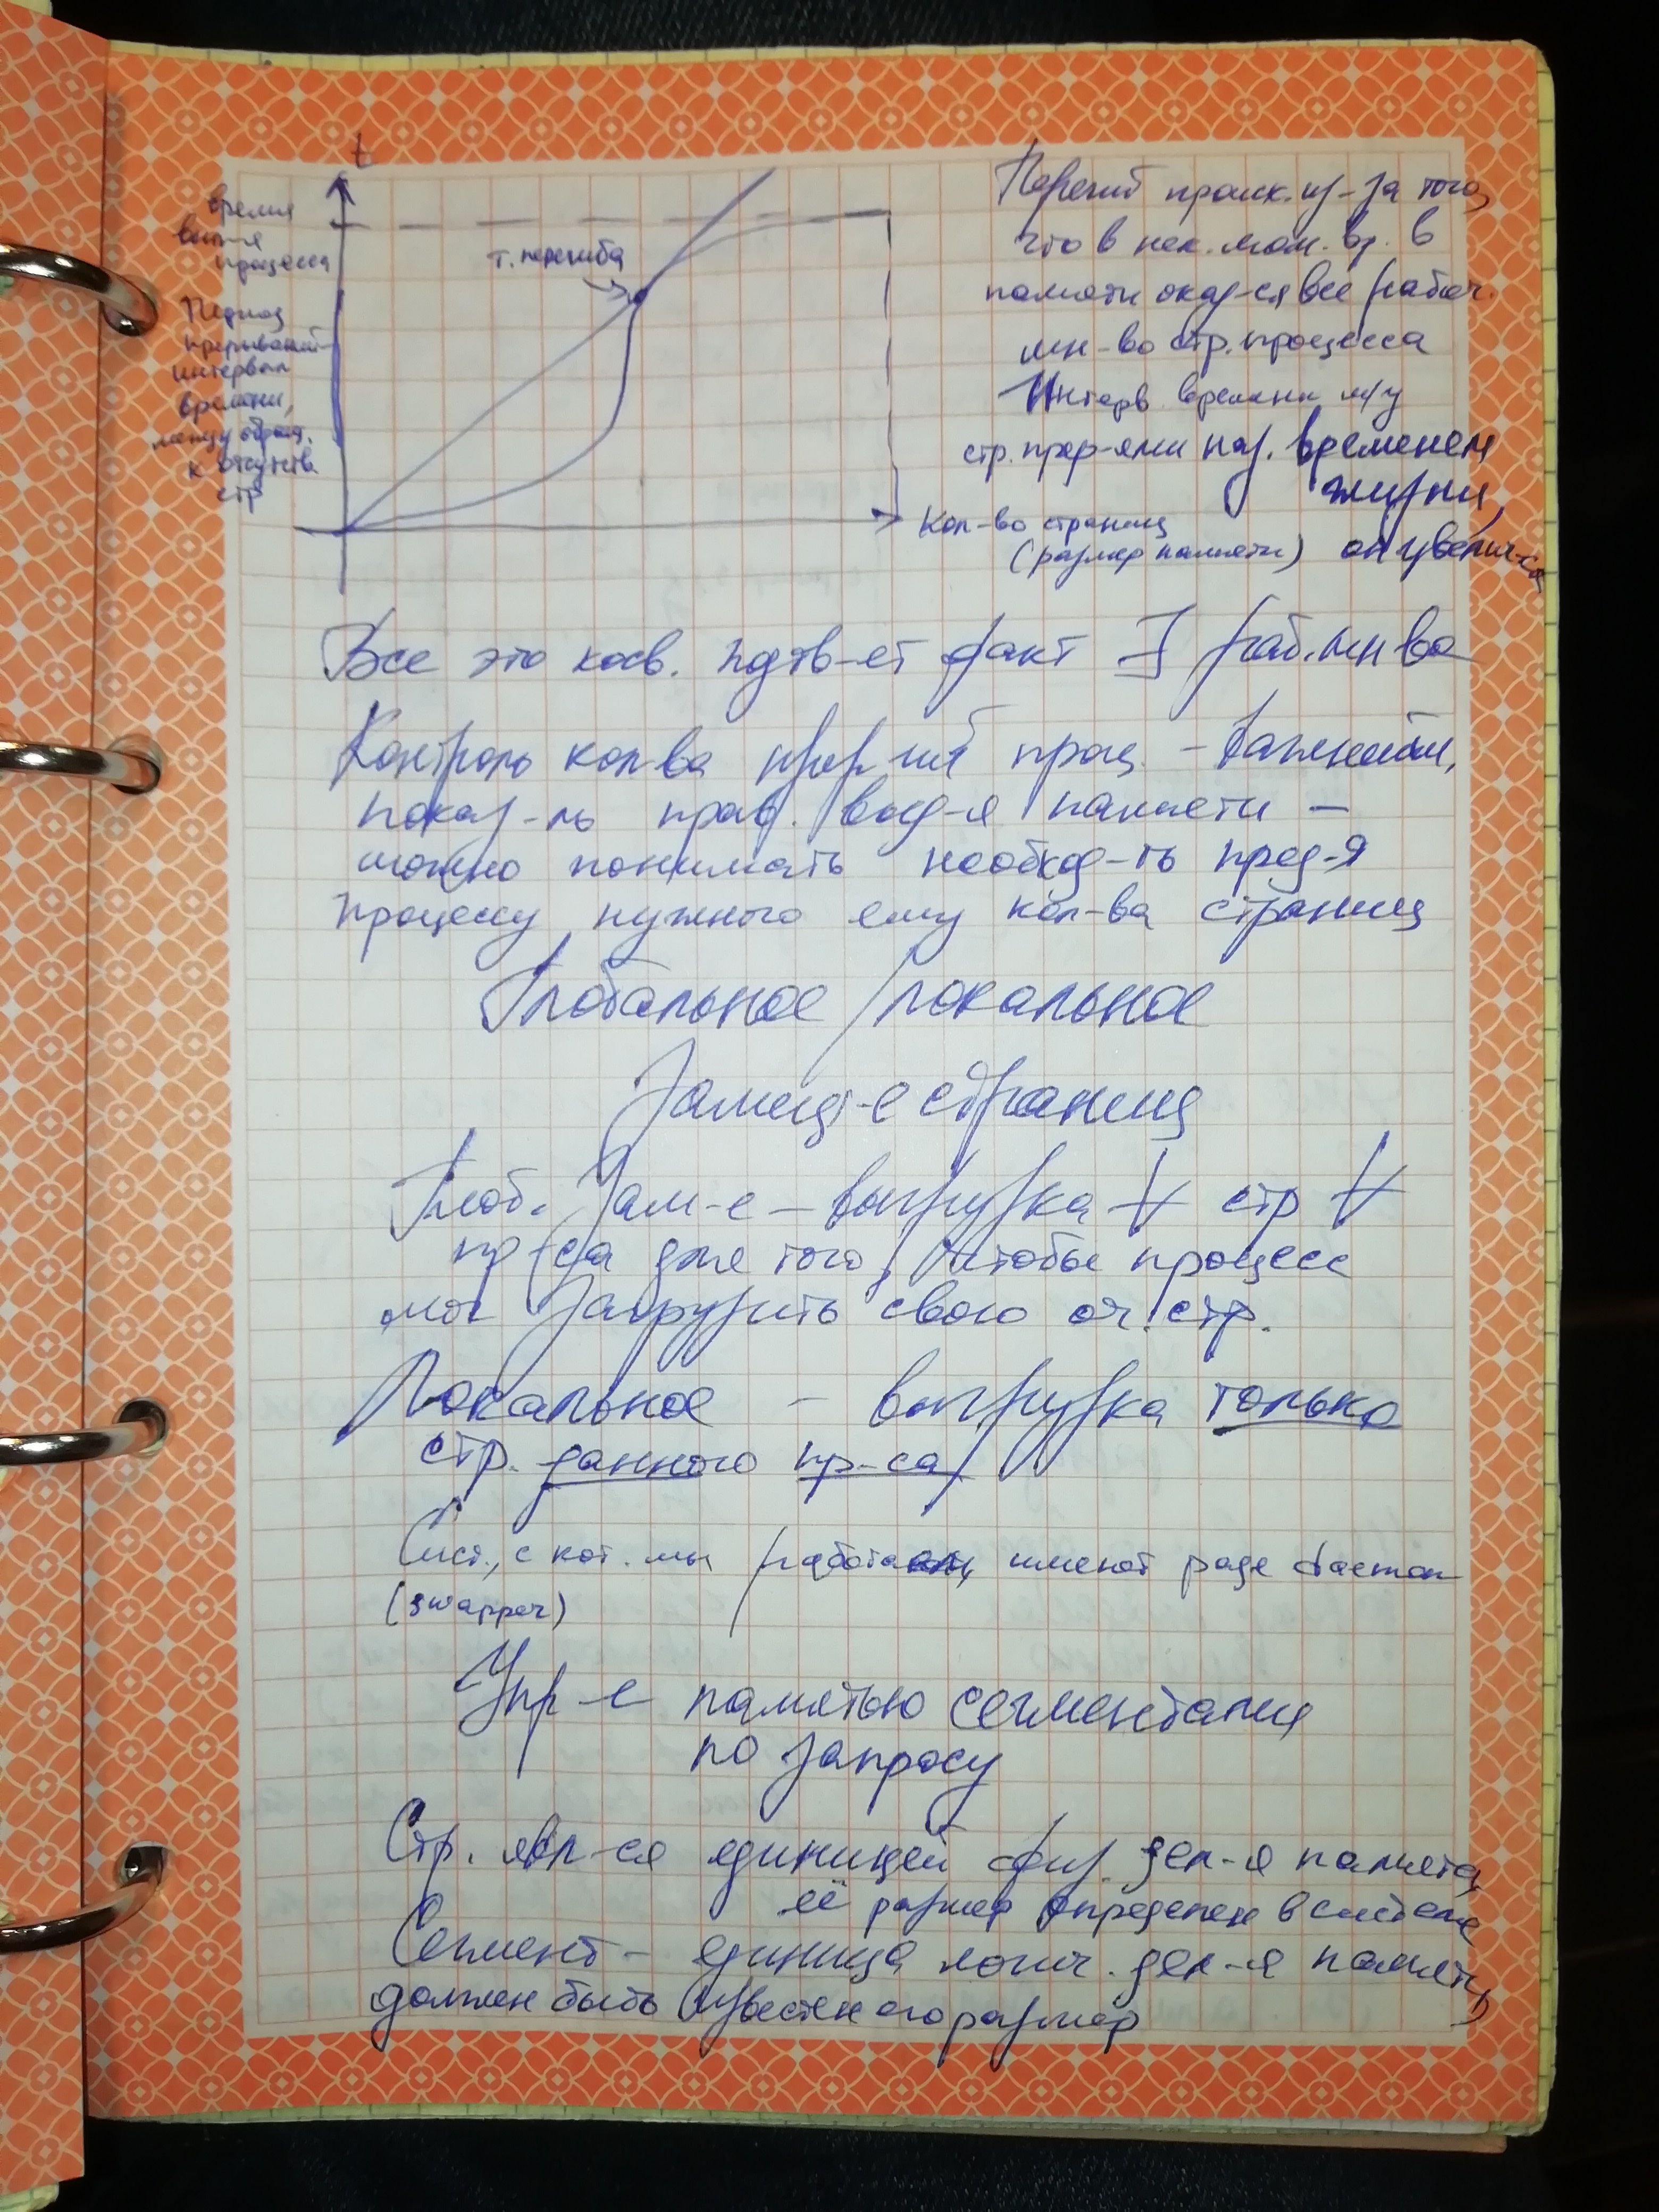 t
время
вып-я
процесса
т. перегиба
Период
прерываний -
интервал
времени,
между обращ.
к отсутств.
стр
Кол-во страниц
(размер памяти)
Перегиб происх. из-за того,
что в нек. мом. вр. в
памяти оказ-ся все рабоч.
мн-во стр. процесса
Интерв времени м/у
стр. прер-ями наз. временем
жизни,
он увелич-ся
Все это косв. подтв-ет факт ∃ раб. мн-ва
Контроль кол-ва прер-ний проц. – важнейш.
показ-ль прав. выд-я памяти –
можно понимать необход-ть пред-я
процессу нужного ему кол-ва страниц
Глобальное/локальное
Замещ-е страниц
Глоб. зам-е – выгрузка ∀ стр ∀
пр-са для того, чтобы процесс
мог загрузить свою оч. стр.
Локальное – выгрузка только
стр. данного пр-са
Сист., с кот. мы работаем, имеют page daemon
(swapper)
Упр-е памятью сегментами
по запросу
Стр. явл-ся единицей физ. дел-я памяти,
её размер определен в системе
Сегмент – единица логич. дел-я памяти,
должен быть известен его размер